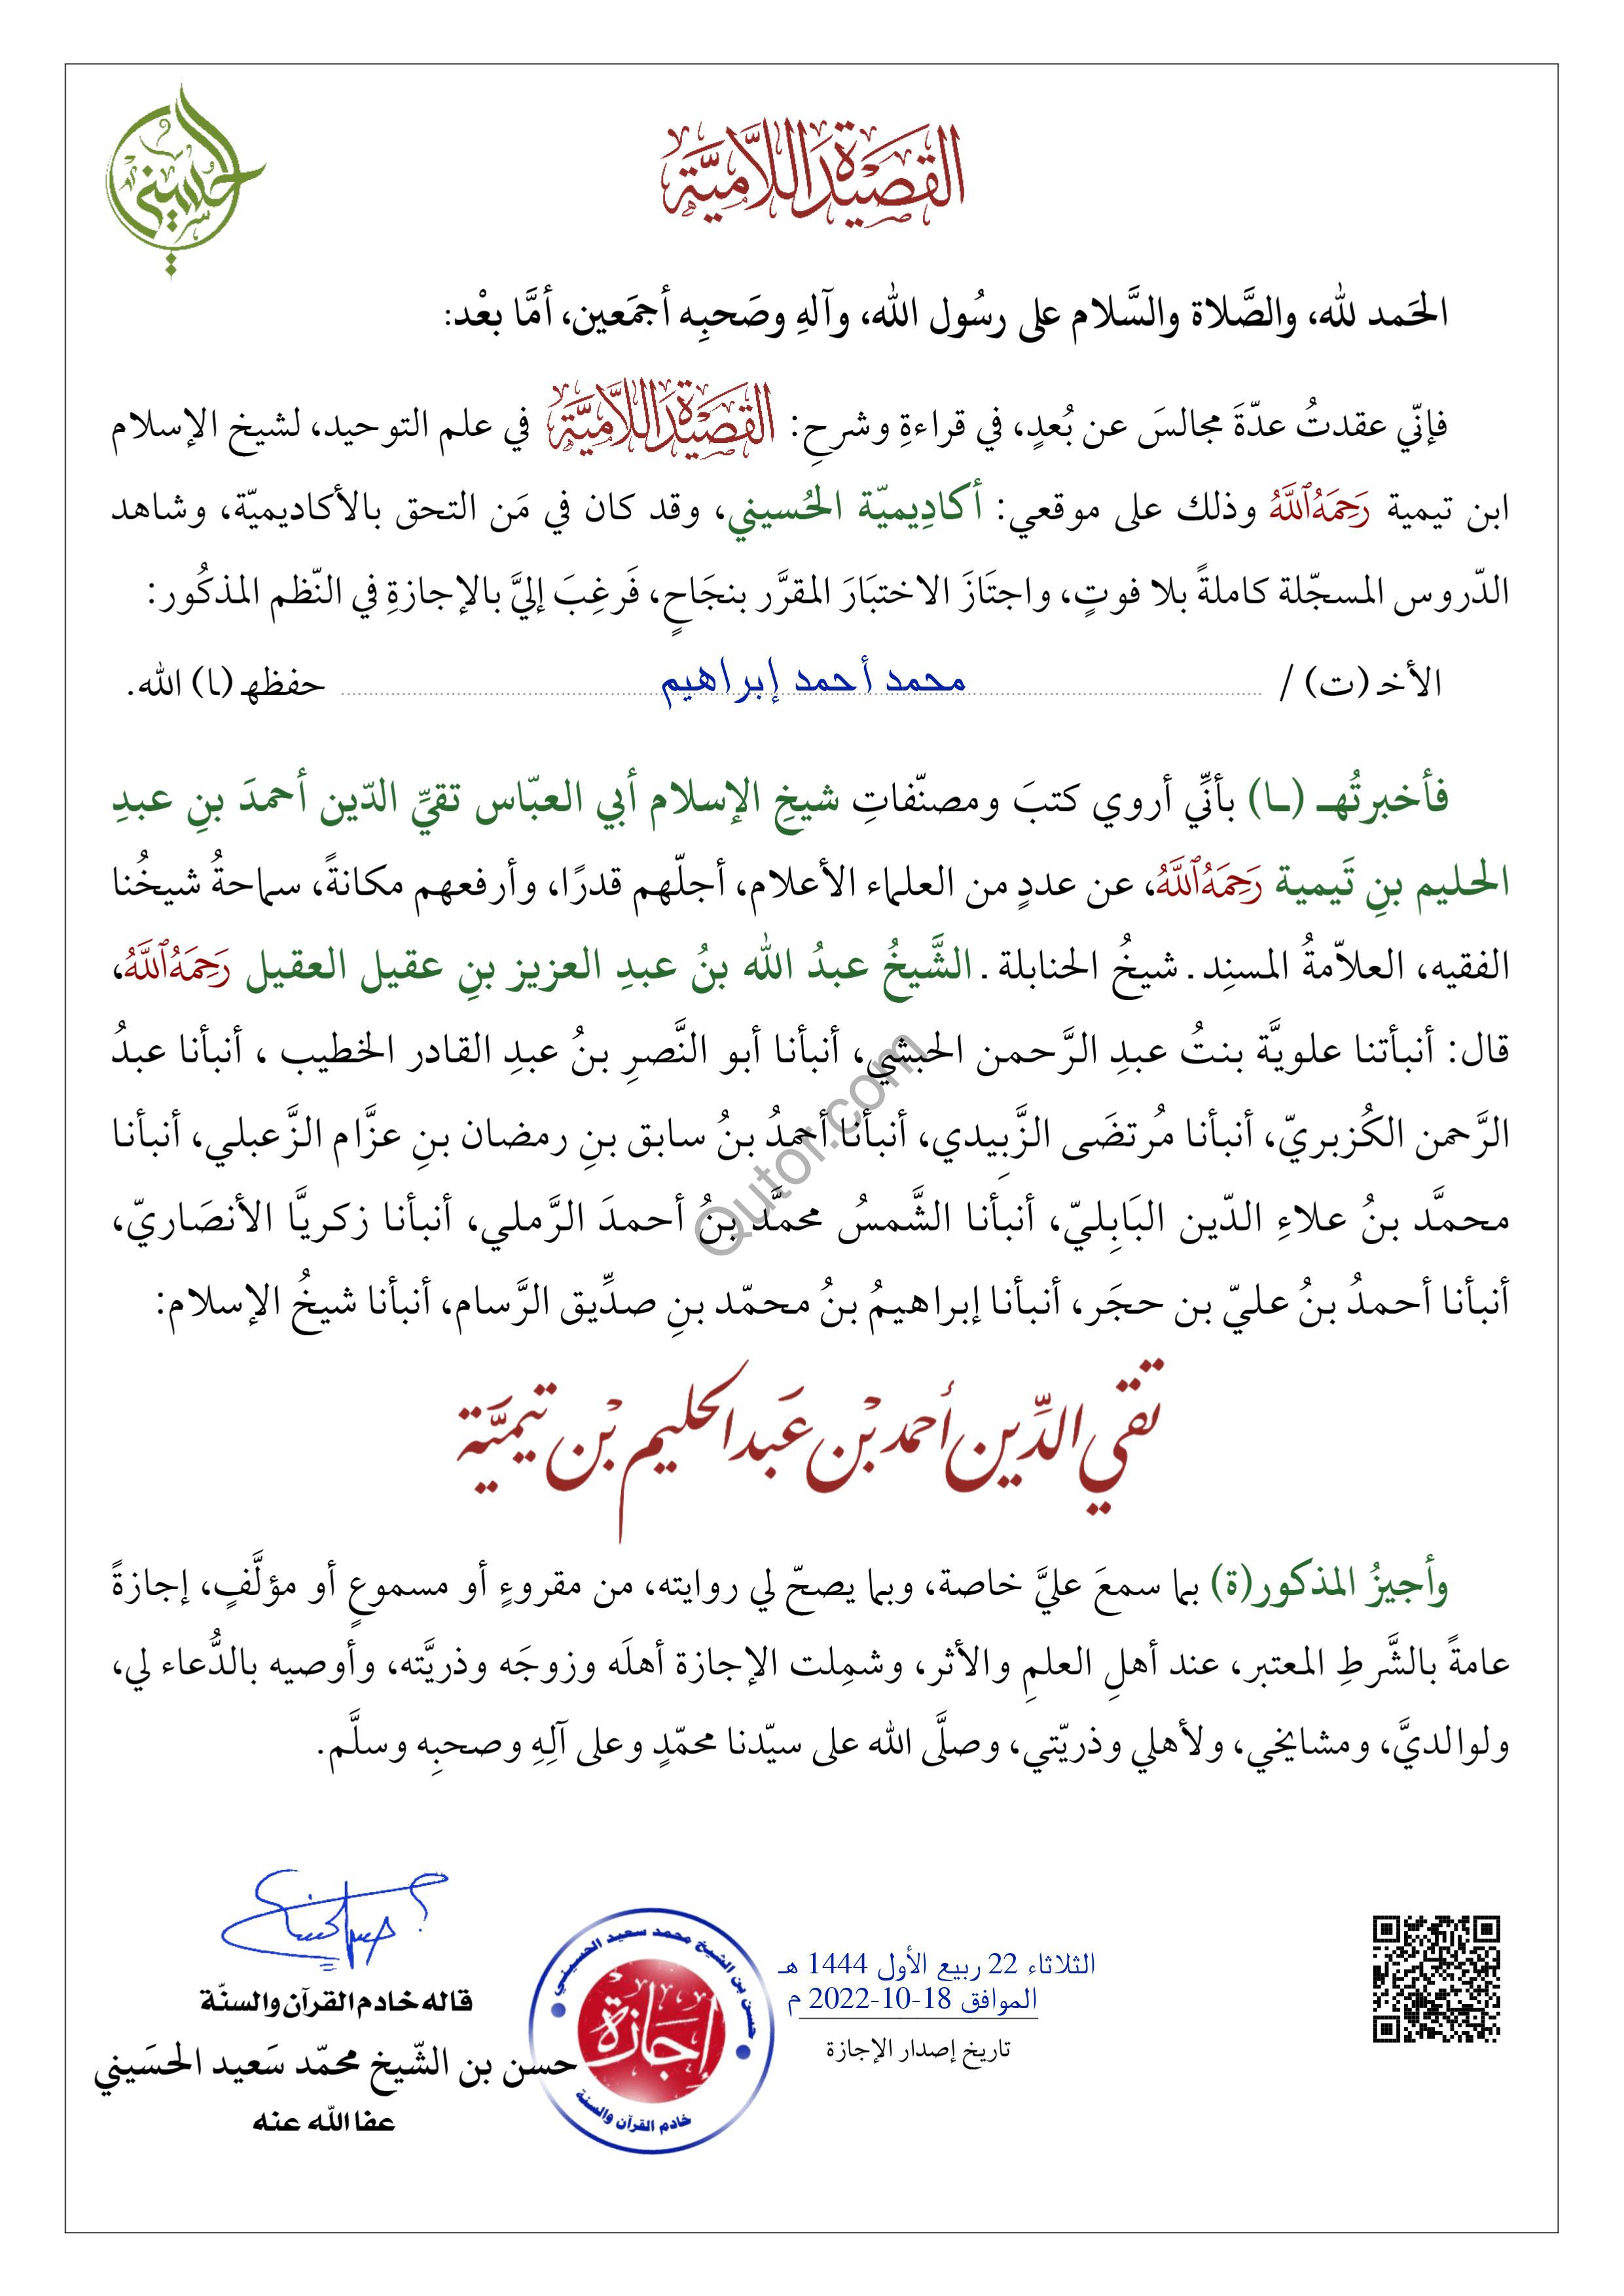 الحسيني
القصيدة اللامية
الحَمد لله، والصَّلاة والسَّلام على رسُول الله، وآلهِ وصَحبِه أجمَعين، أمَّا بعْد:
فإنّي عقدتُ عدّةَ مجالسَ عن بُعدٍ، في قراءةِ وشرحِ: القصيدة اللامية في علم التوحيد، لشيخ الإسلام
ابن تيمية رَحِمَهُ ٱللَّهُ وذلك على موقعي: أكادِيميّة الحُسيني، وقد كان في مَن التحق بالأكاديميّة، وشاهد
الدّروس المسجّلة كاملةً بلا فوتٍ، واجتَازَ الاختبَارَ المقرَّر بنجَاحٍ، فَرغِبَ إليَّ بالإجازةِ في النّظم المذكُور:
الأخـ (ت) / محمد أحمد إبراهيم حفظهـ (ا) الله.
فأخبرتُهـ (ـا) بأنِّي أروي كتبَ ومصنّفاتِ شيخِ الإسلام أبي العبّاس تقيِّ الدّين أحمدَ بنِ عبدِ
الحليم بنِ تَيمية رَحِمَهُ ٱللَّهُ، عن عددٍ من العلماء الأعلام، أجلّهم قدرًا، وأرفعهم مكانةً، سماحةُ شيخُنا
الفقيه، العلاّمةُ المسنِد . شيخُ الحنابلة . الشَّيخُ عبدُ الله بنُ عبدِ العزيز بنِ عقيل العقيل رَحِمَهُ ٱللَّهُ،
قال: أنبأتنا علويَّة بنتُ عبدِ الرَّحمن الحبشي، أنبأنا أبو النَّصرِ بنُ عبدِ القادر الخطيب ، أنبأنا عبدُ
الرَّحمن الكُزبريّ، أنبأنا مُرتضَى الزَّبِيدي، أنبأنا أحمدُ بنُ سابق بنِ رمضان بنِ عزَّام الزَّعبلي، أنبأنا
محمَّد بنُ علاءِ الدّين البَابِليّ، أنبأنا الشَّمسُ محمَّد بنُ أحمدَ الرَّملي، أنبأنا زكريَّا الأنصَاريّ،
أنبأنا أحمدُ بنُ عليّ بن حجَر، أنبأنا إبراهيمُ بنُ محمّد بنِ صدِّيق الرَّسام، أنبأنا شيخُ الإسلام:
Qutor.com
تقي الدِّين أحمد بْن عَبد الحليم بْن تيميَّة
وأجيزُ المذكور(ة) بما سمعَ عليَّ خاصة، وبما يصحّ لي روايته، من مقروءٍ أو مسموعٍ أو مؤلَّفٍ، إجازةً
عامةً بالشَّرطِ المعتبر، عند أهلِ العلمِ والأثر، وشمِلت الإجازة أهلَه وزوجَه وذريَّته، وأوصيه بالدُّعاء لي،
ولوالديَّ، ومشايخي، ولأهلي وذريّتي، وصلَّى الله على سيّدنا محمّدٍ وعلى آلِهِ وصحبِه وسلَّم.
الثلاثاء 22 ربيع الأول 1444 هـ
الموافق 18-10-2022 م
تاريخ إصدار الإجازة
حسن بن الشيخ محمد سعيد الحسيني
إجازة
خادم القرآن والسنة
قاله خادم القرآن والسنّة
حسن بن الشّيخ محمّد سَعيد الحسَيني
عفا اللّه عنه